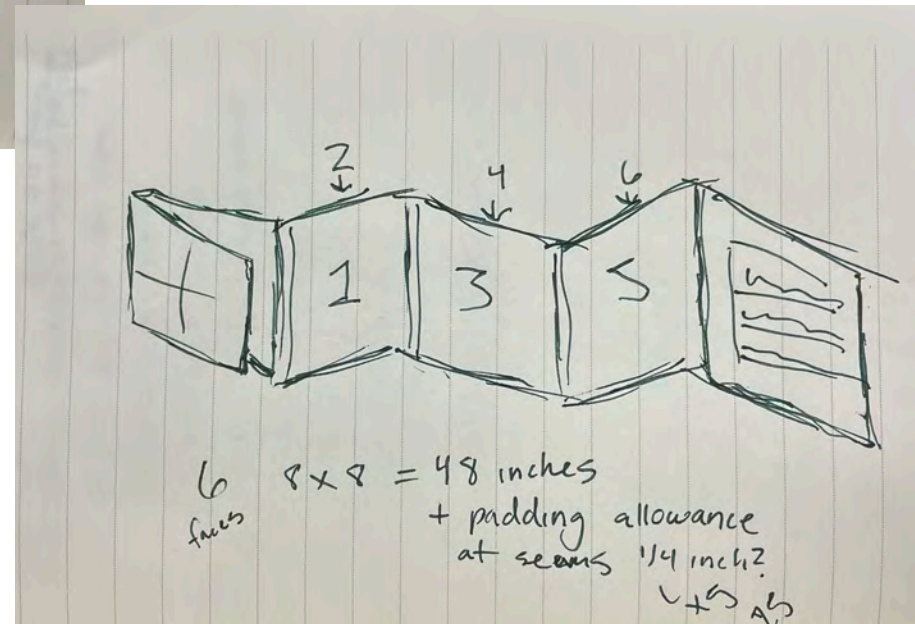 2
4
6
1
3
5
6 8 x 8 = 48 inches
faces
+ padding allowance
at seams 1/4 inch?